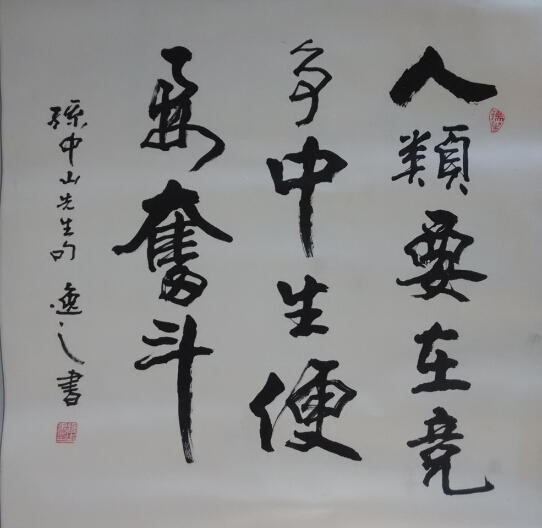 人類要在竞
争中生便
要奮斗
孫中山先生句 逸之書